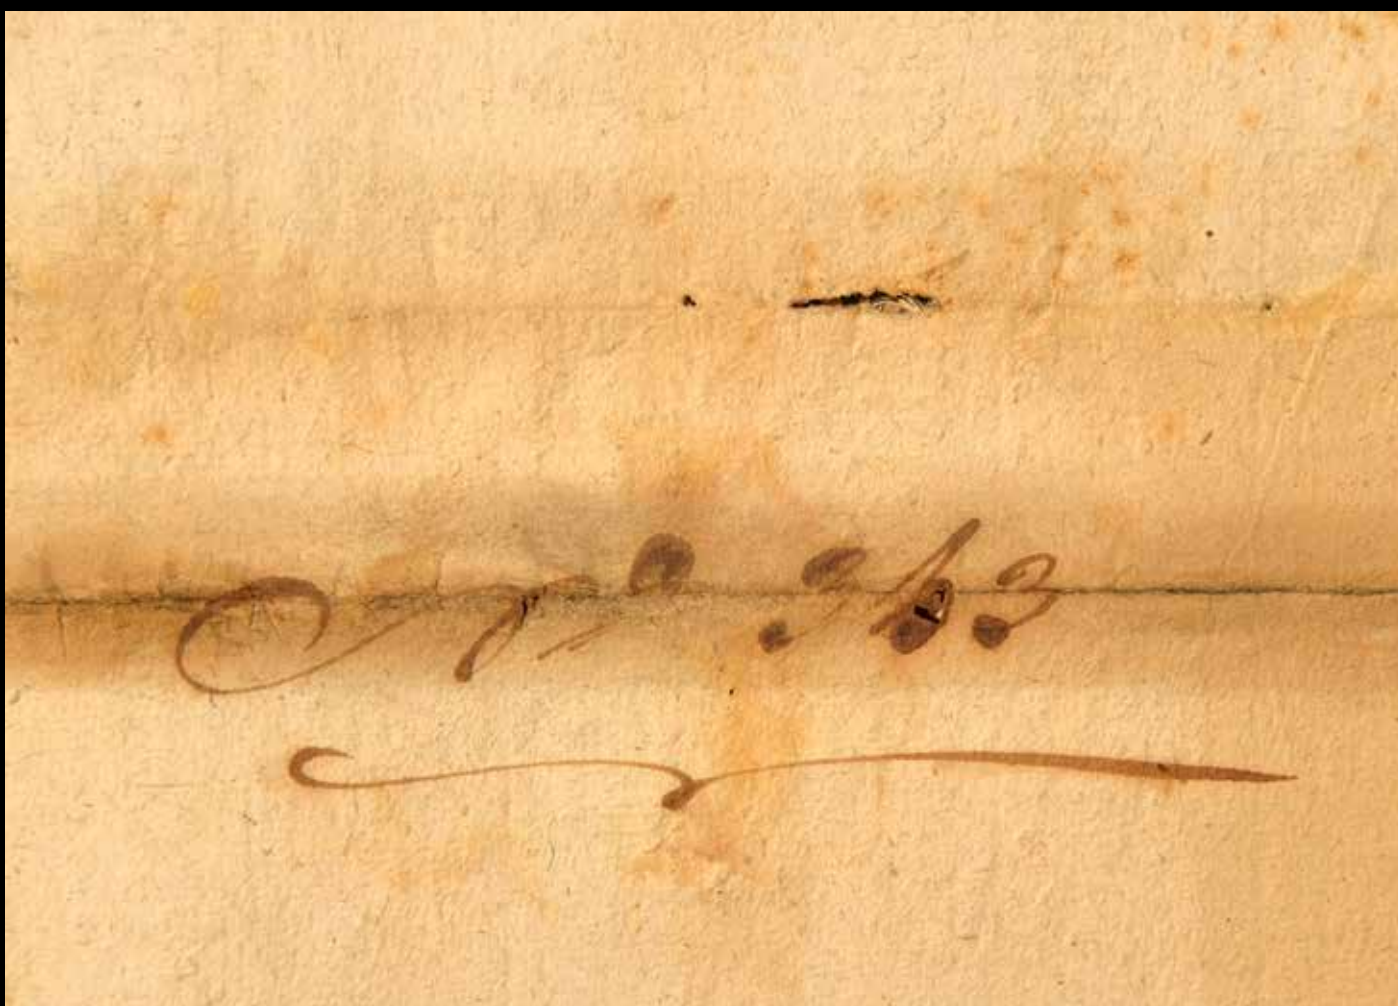 Nº 363